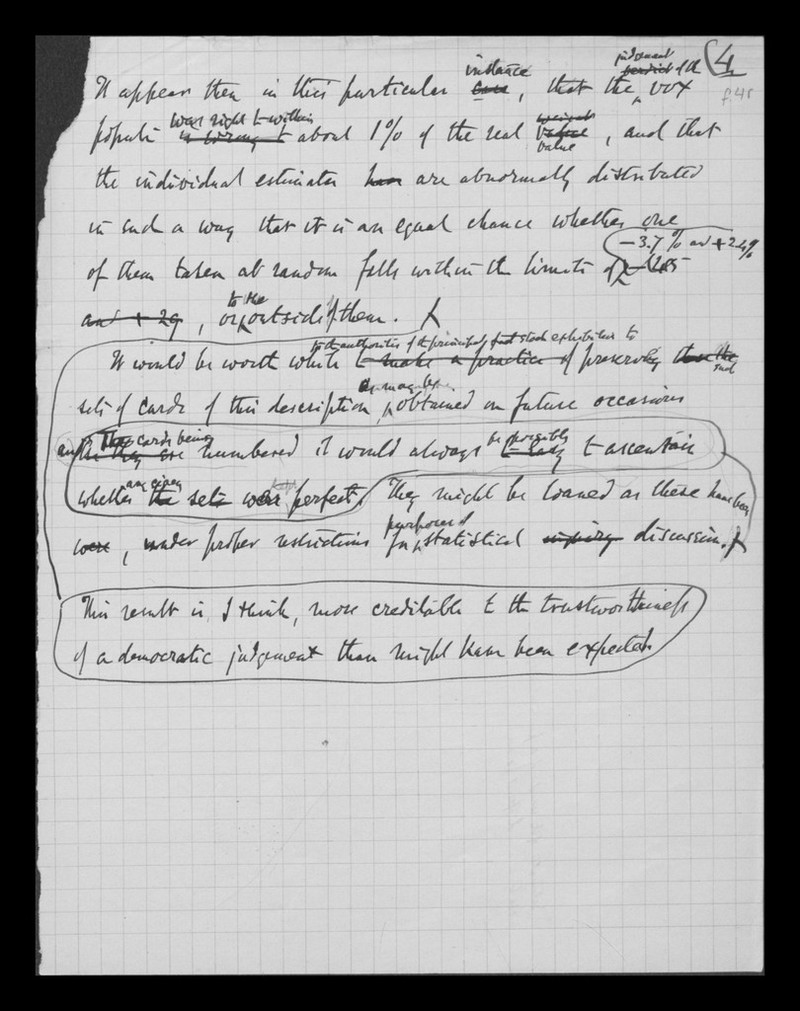 (4
f 4r
instance judgement
It appears then in this particular case, that the verdict of the vox
was right to within weight
populi is wrong to about 1% of the real value, and that
value
the individual estimates have are abnormally distributed
in such a way that it is an equal chance whether one
−3.7% and +2.4%
of them taken at random falls within the limits of −45
to the
and + 29, or outside of them.
to the authorities of the principal fat stock exhibitions to
It would be worth while to make a practice of preserving such
as may be
sets of cards of this description, obtained on future occasions
The cards being be possible
and they are numbered it would always to easy to ascertain
any given
whether the sets were perfect. They might be loaned as these have been
purposes of
were, under proper restrictions for statistical inquiry discussion.
This result is, I think, more creditable to the trustworthiness
of a democratic judgement than might have been expected.